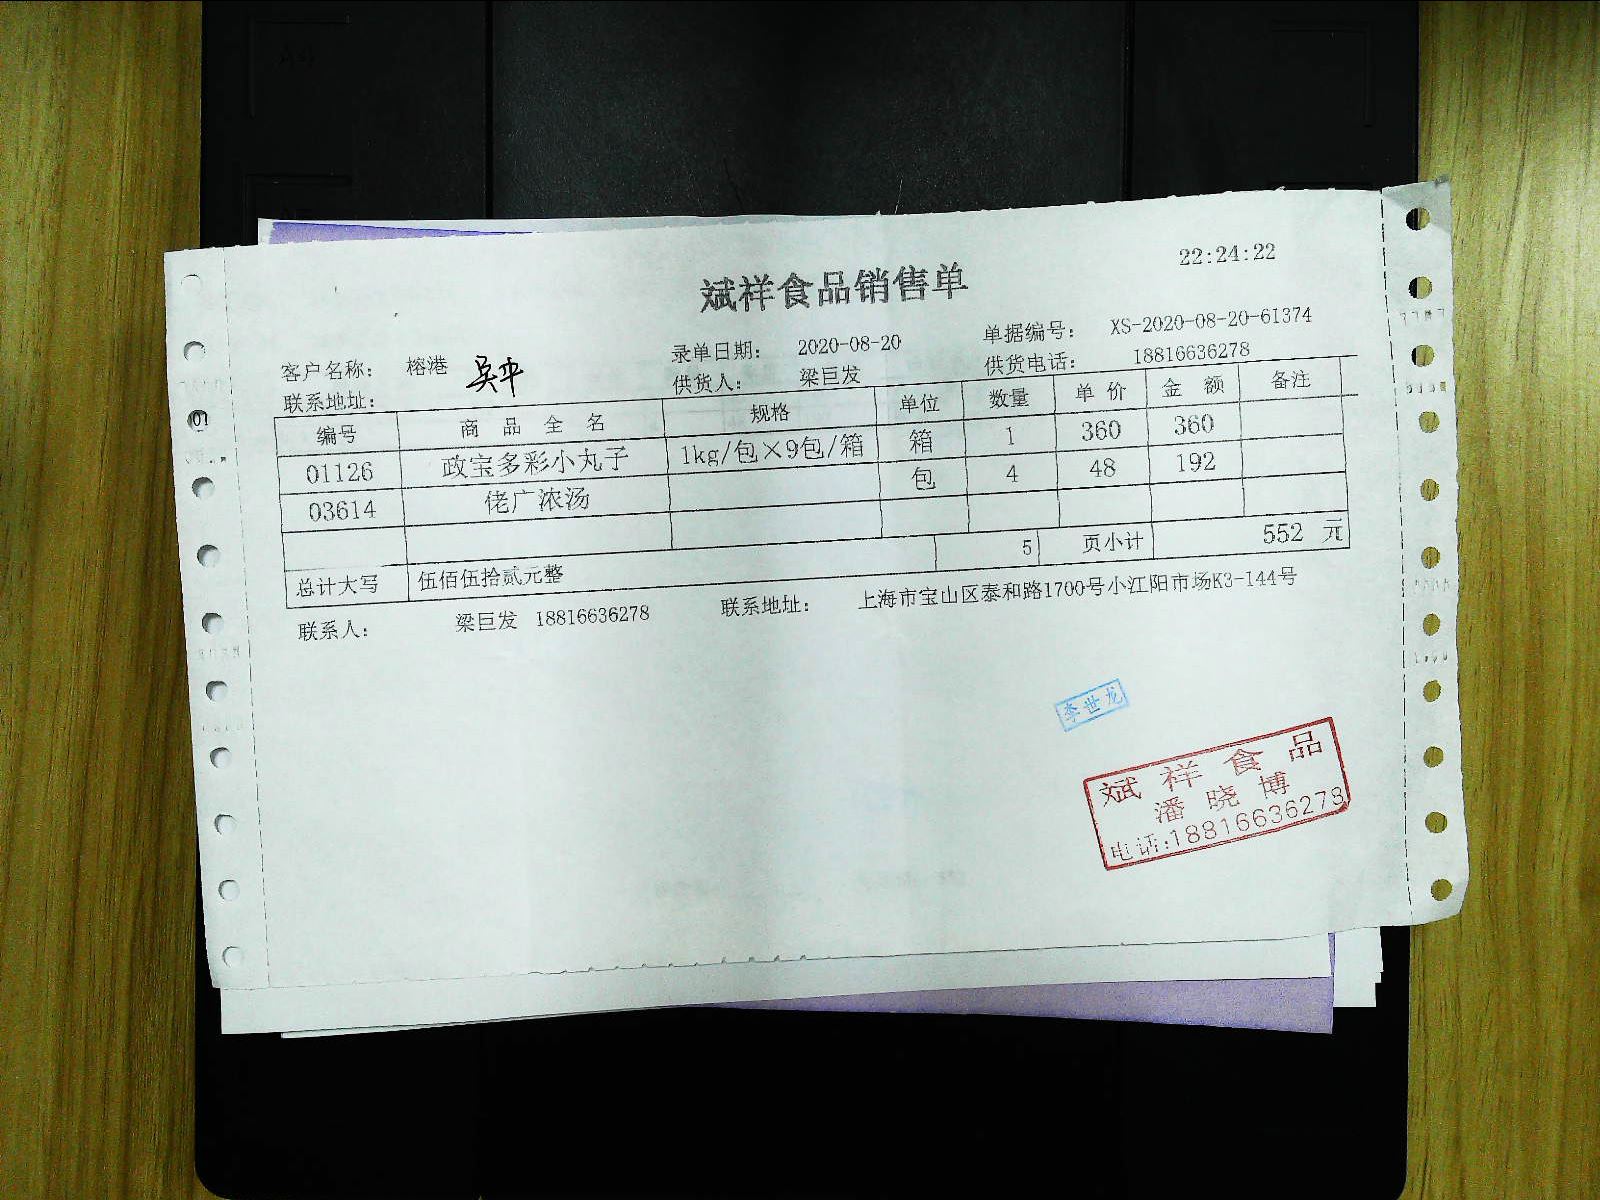 22:24:22
斌祥食品销售单
客户名称： 榕港 吴平 录单日期： 2020-08-20 单据编号： XS-2020-08-20-61374
联系地址： 供货人： 梁巨发 供货电话： 18816636278
编号 商品全名 规格 单位 数量 单价 金额 备注
01126 政宝多彩小丸子 1kg/包×9包/箱 箱 1 360 360
03614 佬广浓汤 包 4 48 192
5 页小计 552 元
总计大写 伍佰伍拾贰元整
联系人： 梁巨发 18816636278 联系地址： 上海市宝山区泰和路1700号小江阳市场K3-144号
李世龙
斌祥食品
潘晓博
电话:18816636278